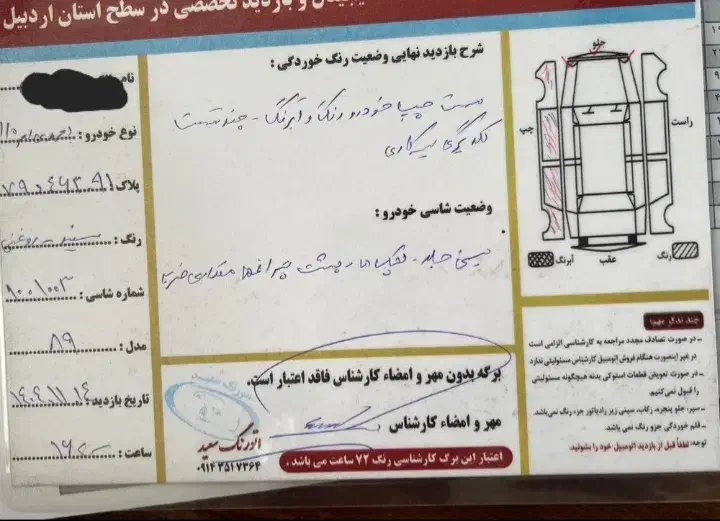 و بازدید تخصصی در سطح استان اردبیل
نوع خودرو :
پلاک
رنگ :
شماره شاسی : ۱۰۰۱۰۰۳
مدل : ۸۹
تاریخ بازدید : ۱۴۰۴،۱۱،۱۴
ساعت :
شرح بازدید نهایی وضعیت رنگ خوردگی :
سمت چپ خودرو رنگ و آبرنگ - چند قسمت
لکه گیری
وضعیت شاسی خودرو :
سینی جلو -
برگه بدون مهر و امضاء کارشناس فاقد اعتبار است.
مهر و امضاء کارشناس
اتورنگ سعید
۰۹۱۴۳۵۱۷۳۶۴
اعتبار این برگ کارشناسی رنگ ۷۲ ساعت می باشد .
جلو
راست
چپ
عقب
رنگ
آبرنگ
چند تذکر مهم:
ـ در صورت تصادف مجدد مراجعه به کارشناسی الزامی است
در غیر اینصورت هنگام فروش اتومبیل کارشناس مسئولیتی ندارد
ـ در صورت تعویض قطعات استوکی بدنه هیچگونه مسئولیتی
را قبول نمی‌کنیم.
ـ سپر، جلو پنجره، رکاب، سینی زیر رادیاتور جزء رنگ نمی‌باشد.
ـ قلم خوردگی جزو رنگ نمی باشد.
توجه: لطفاً قبل از بازدید اتومبیل خود را بشوئید.